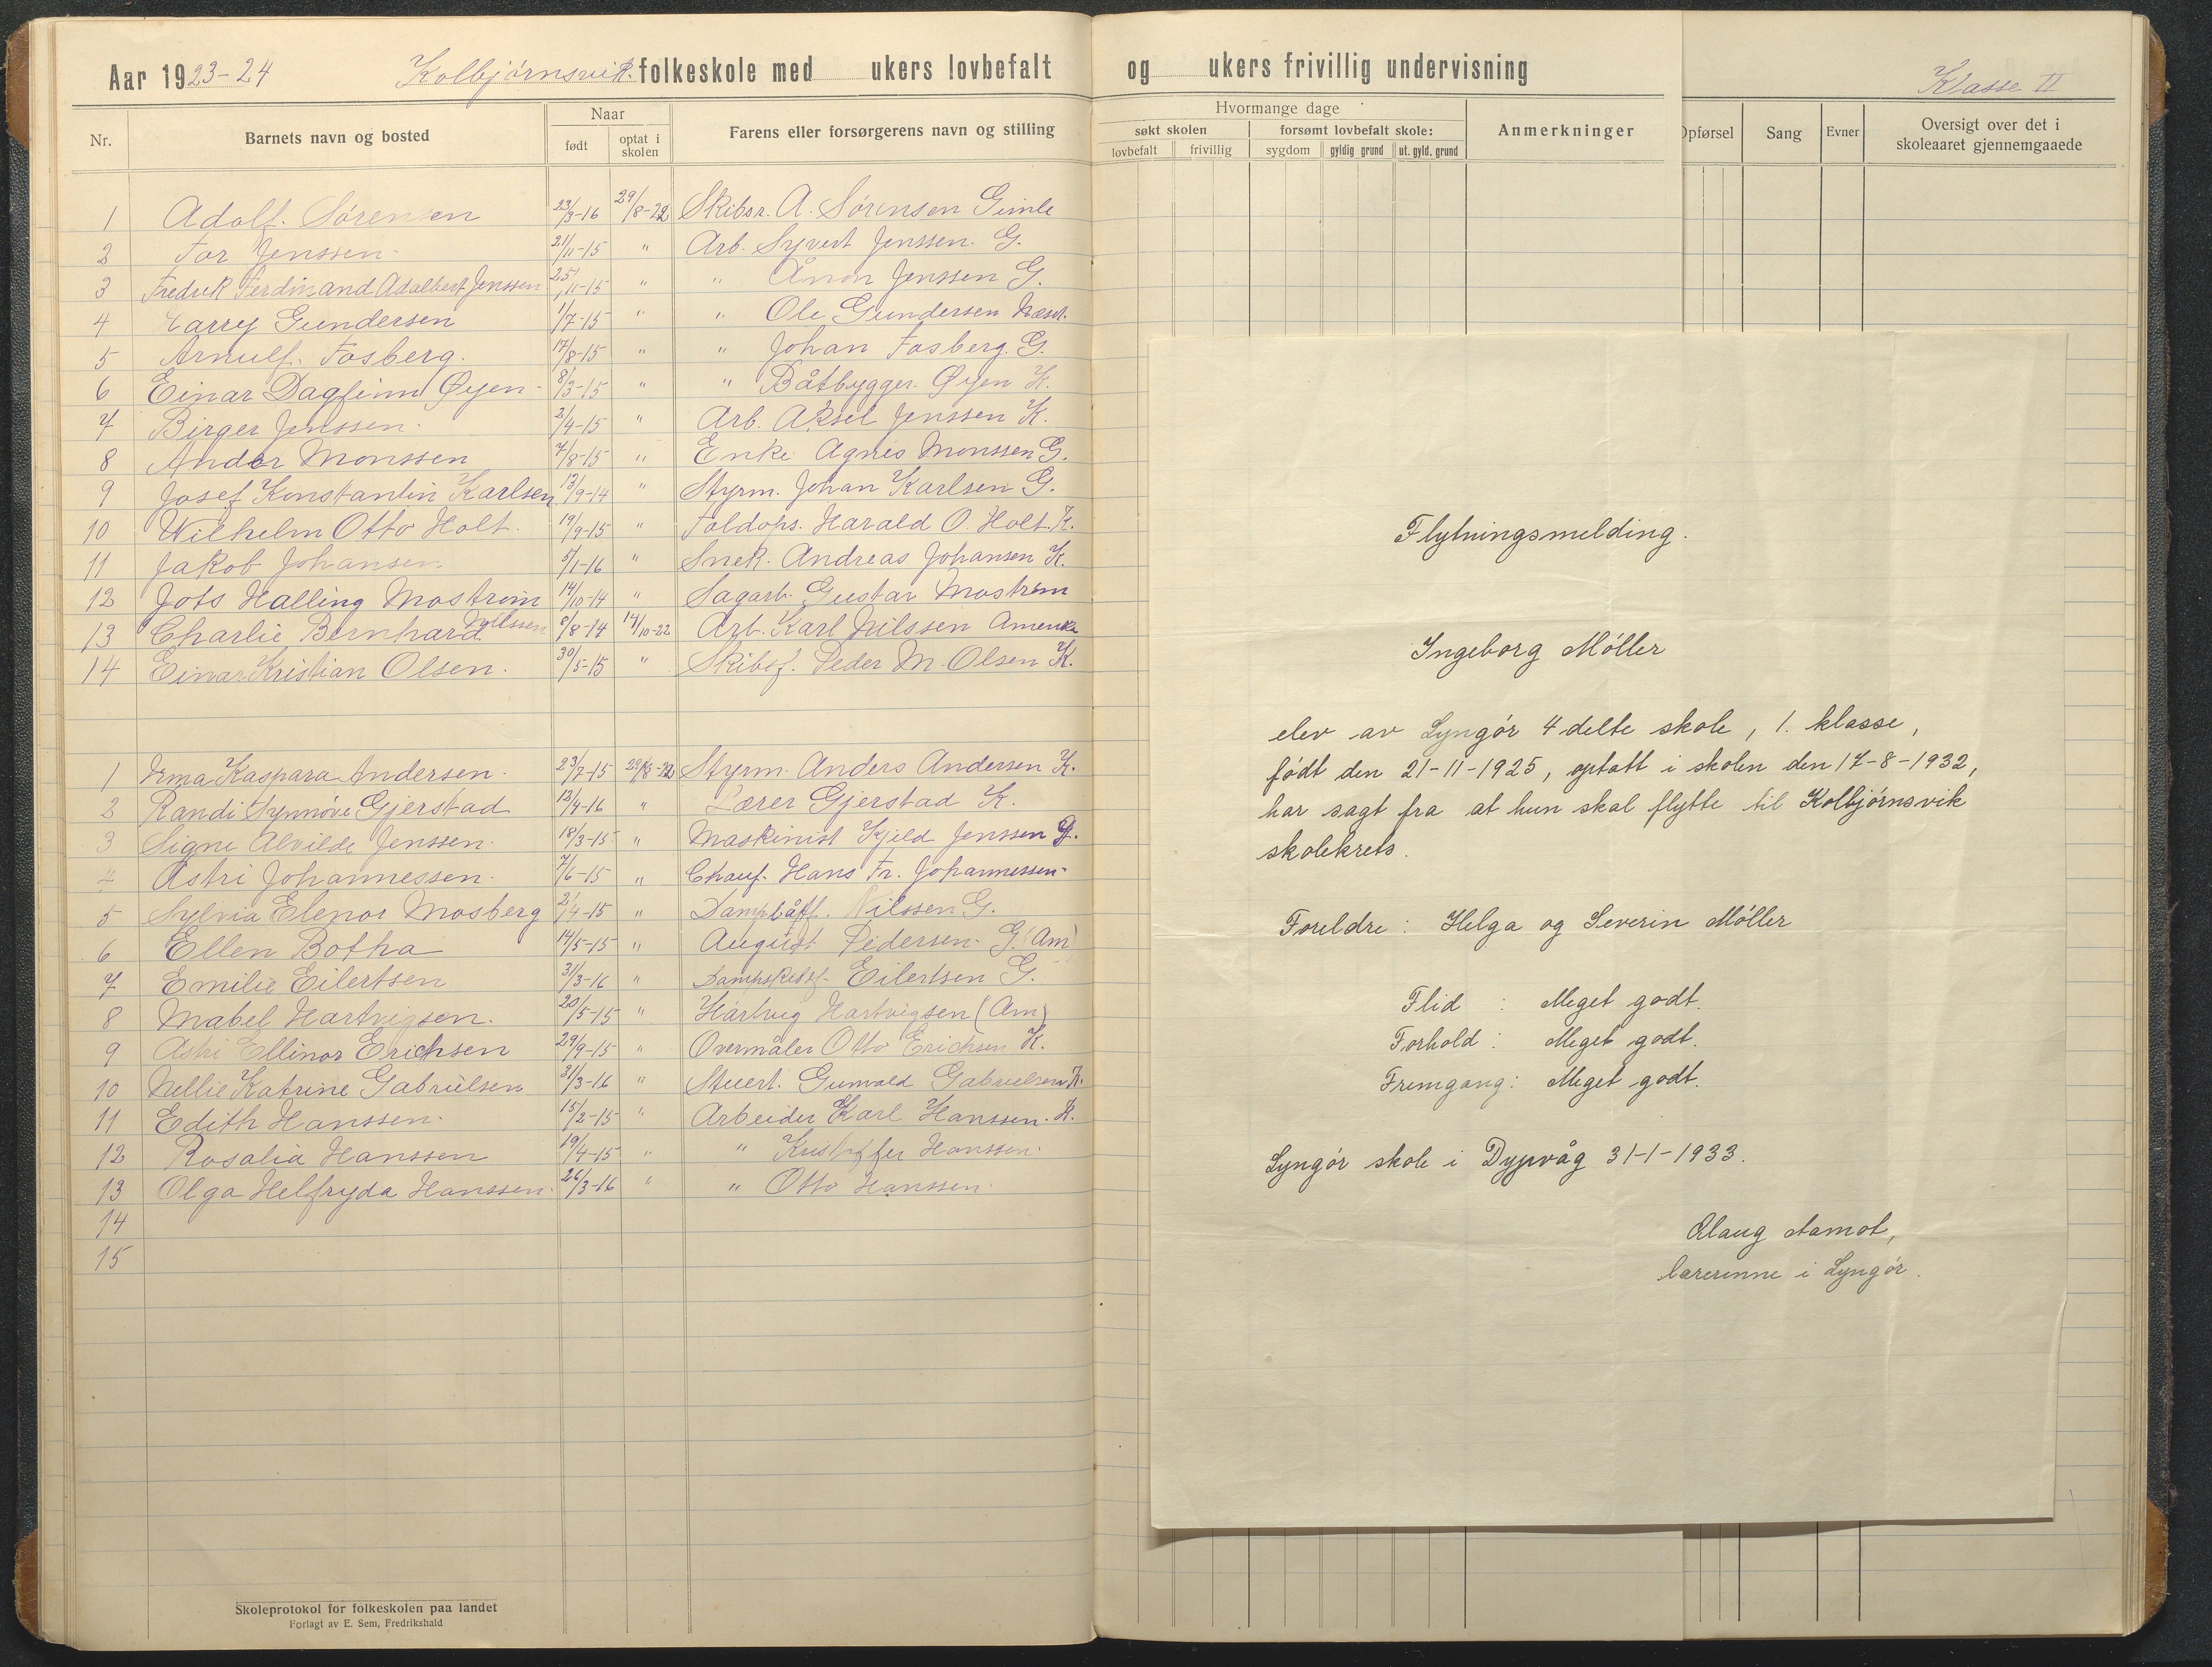 Aar 1923-24 Kolbjørnsvik folkeskole med ukers lovbefalt og ukers frivillig undervisning
Klasse II
Nr. Barnets navn og bosted Naar født optat i skolen Farens eller forsørgerens navn og stilling
Hvormange dage
søkt skolen forsømt lovbefalt skole: Anmerkninger
lovbefalt frivillig sygdom gyldig grund ut. gyld. grund
Opførsel Sang Evner Oversigt over det i skoleaaret gjennemgaaede
1 Adolf. Sørensen 23/3-16 29/8-22 Skibsr. A. Sørensen Gimle
2 Tor Jenssen 21/11-15 " Arb. Syvert Jenssen. G.
3 Fredrik Ferdinand Adalbert Jenssen 25/11-15 " " Ånon Jenssen G.
4 Harry Gundersen 1/7-15 " " Ole Gundersen
5 Arnulf. Fosberg. 17/8-15 " " Johan Fosberg. G.
6 Einar Dagfinn Øyen 8/3-15 " " Båtbygger. Øyen K.
7 Birger Jenssen. 2/4-15 " Arb. Aksel Jenssen K.
8 Andor Monssen 7/8-15 " Enke Agnes Monssen G.
9 Josef Konstantin Karlsen 13/9-14 " Styrm. Johan Karlsen G.
10 Wilhelm Otto Holt. 19/9-15 " Toldops. Harald O. Holt. K.
11 Jakob Johansen 5/1-16 " Snek. Andreas Johansen K.
12 Jots Halling Mostrøm 14/10-14 " Sagarb. Gustav Mostrøm
13 Charlie Bernhard Nilssen 8/8-14 14/10-22 Arb. Karl Nilssen Amerika
14 Einar Kristian Olsen. 30/5-15 " Skibsf. Peder M. Olsen K.
1 Irma Kaspara Andersen. 23/7-15 29/8-22 Styrm. Anders Andersen K.
2 Randi Synnøve Gjerstad 13/4-16 " Lærer Gjerstad K.
3 Signe Alvilde Jenssen. 18/3-15 " Maskinist Kjeld Jenssen G.
4 Astri Johannessen. 7/6-15 " Chauf. Hans Fr. Johannessen
5 Sylvia Elenor Mosberg 2/4-15 " Dampbåtf. Nilssen G.
6 Ellen Botha 14/5-15 " August Pedersen. G. (Am)
7 Emilie Eilertsen 31/3-16 " Dampskibsf. Eilertsen G.
8 Mabel Hartvigsen. 20/5-15 " Hartvig Hartvigsen (Am)
9 Astri Ellinor Erichsen 29/9-15 " Overmåler Otto Erichsen K.
10 Nellie Katrine Gabrielsen 31/3-16 " Stuert. Gunvald Gabrielsen K.
11 Edith Hanssen. 15/2-15 " Arbeider Karl Hanssen. K.
12 Rosalia Hanssen 19/4-15 " " Kristoffer Hanssen.
13 Olga Helfryda Hanssen. 26/3-16 " " Otto Hanssen
14
15
Skoleprotokol for folkeskolen paa landet
Forlagt av E. Sem, Fredrikshald
Flytningsmelding.
Ingeborg Møller
elev av Lyngør 4 delte skole, 1. klasse,
født den 21-11-1925, optatt i skolen den 17-8-1932,
har sagt fra at hun skal flytte til Kolbjørnsvik
skolekrets.
Foreldre: Helga og Severin Møller
Flid : Meget godt.
Forhold : Meget godt.
Fremgang: Meget godt.
Lyngør skole i Dypvåg 31-1-1933.
Olaug Aamot,
lærerinne i Lyngør.